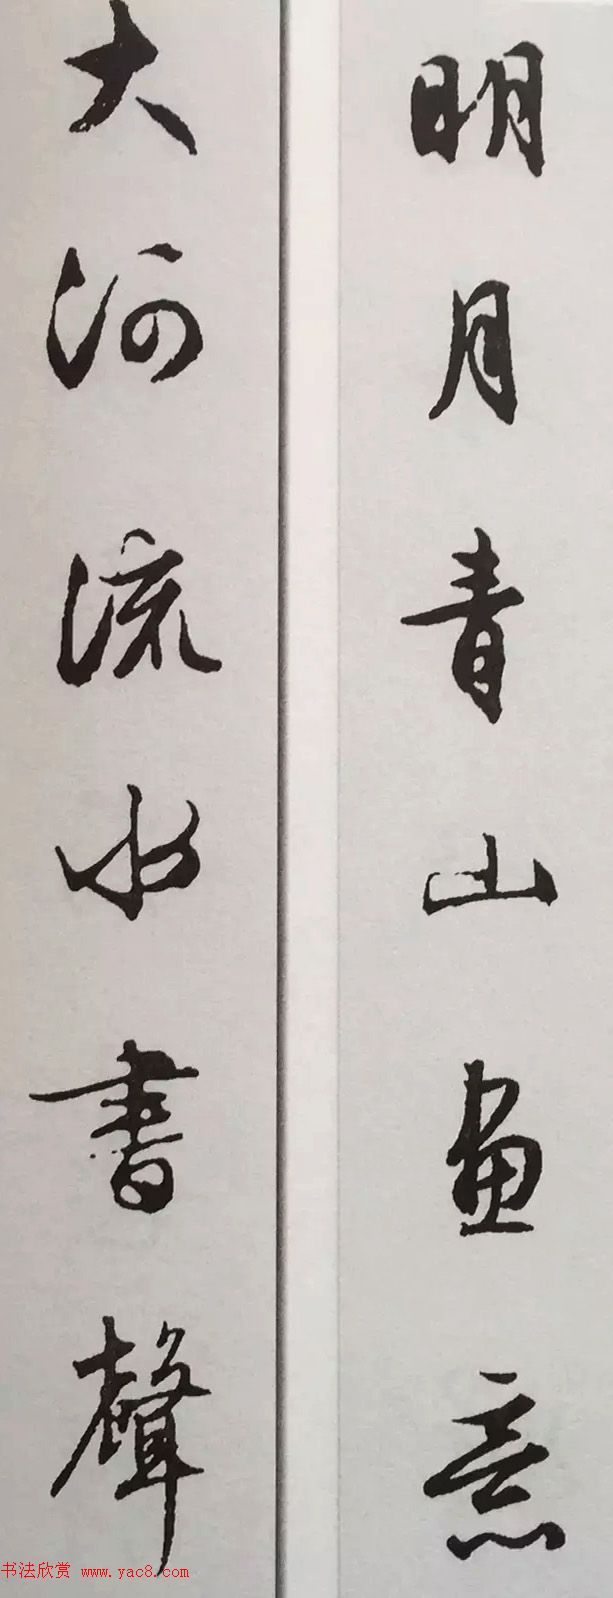 明月青山画意
大河流水書聲
书法欣赏 www.yac8.com